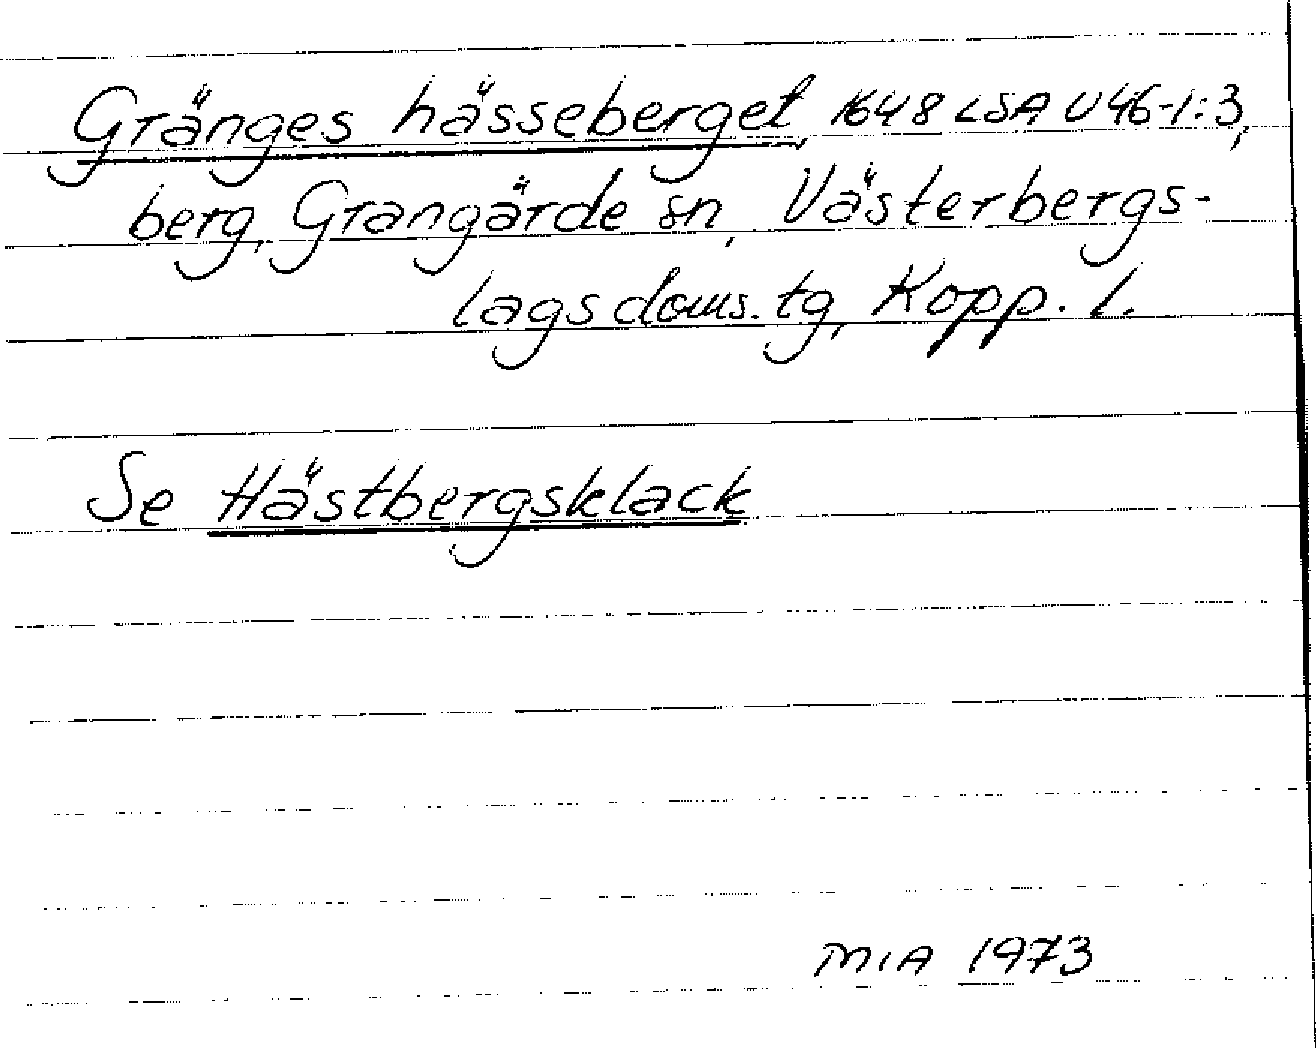 Gränges hässeberget, 1648 LSA U46-1:3,
berg, Grangärde sn, Västerbergs-
lags doms. tg, Kopp. l.
Se Hästbergsklack
MIA 1973